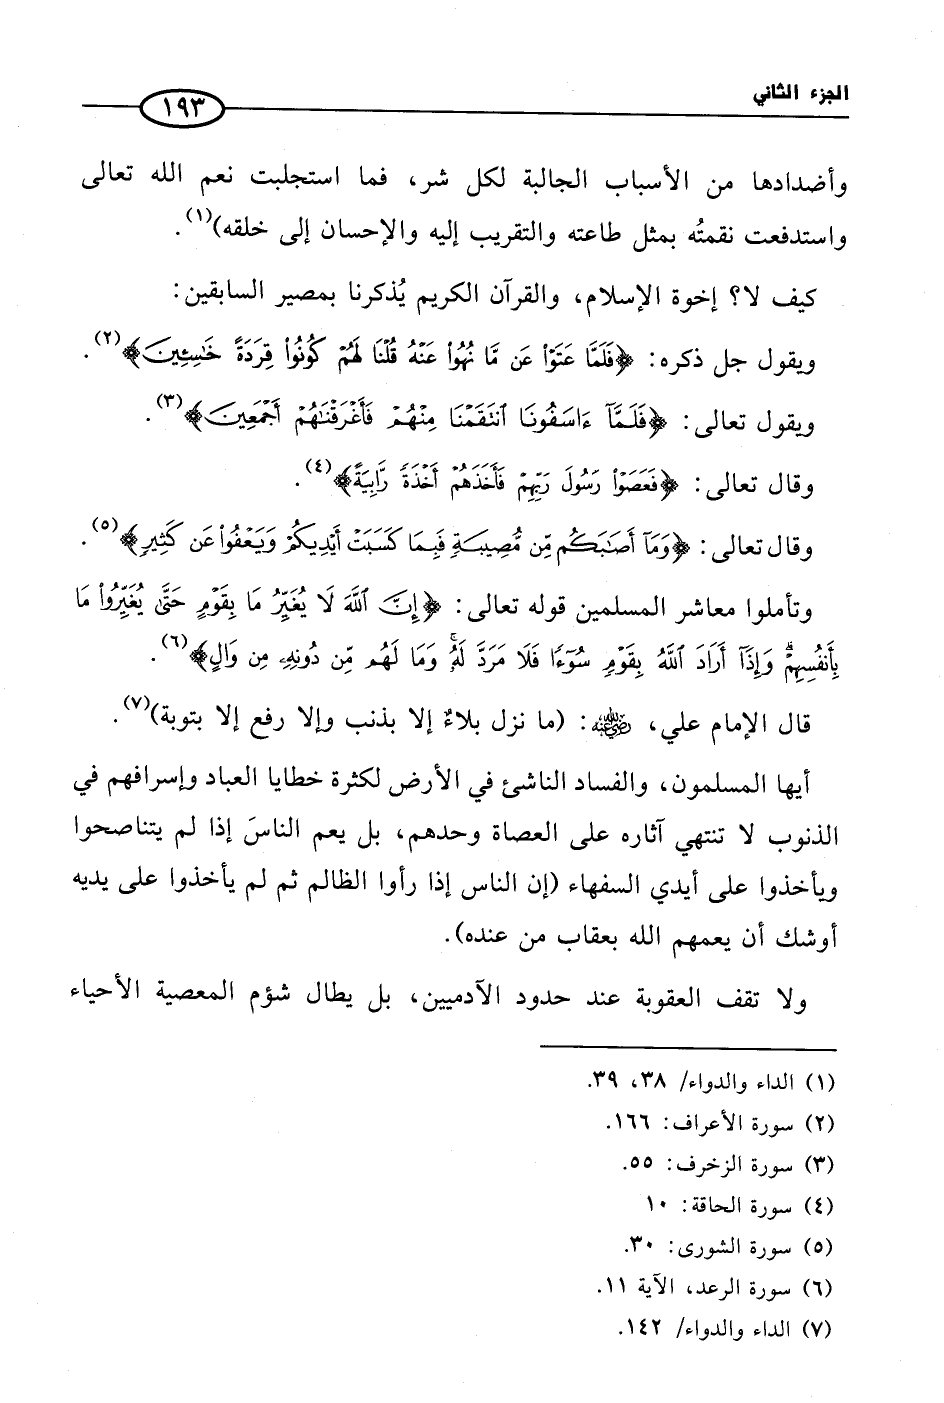 الجزء الثاني
١٩٣
وأضدادها من الأسباب الجالبة لكل شر، فما استجلبت نعم الله تعالى
واستدفعت نقمتُه بمثل طاعته والتقريب إليه والإحسان إلى خلقه)(١).
كيف لا؟ إخوة الإسلام، والقرآن الكريم يُذكرنا بمصير السابقين:
ويقول جل ذكره: ﴿فَلَمَّا عَتَوْا۟ عَن مَّا نُهُوا۟ عَنْهُ قُلْنَا لَهُمْ كُونُوا۟ قِرَدَةً خَـٰسِـِٔينَ﴾(٢).
ويقول تعالى: ﴿فَلَمَّآ ءَاسَفُونَا ٱنتَقَمْنَا مِنْهُمْ فَأَغْرَقْنَـٰهُمْ أَجْمَعِينَ﴾(٣).
وقال تعالى: ﴿فَعَصَوْا۟ رَسُولَ رَبِّهِمْ فَأَخَذَهُمْ أَخْذَةً رَّابِيَةً﴾(٤).
وقال تعالى: ﴿وَمَآ أَصَـٰبَكُم مِّن مُّصِيبَةٍ فَبِمَا كَسَبَتْ أَيْدِيكُمْ وَيَعْفُوا۟ عَن كَثِيرٍ﴾(٥).
وتأملوا معاشر المسلمين قوله تعالى: ﴿إِنَّ ٱللَّهَ لَا يُغَيِّرُ مَا بِقَوْمٍ حَتَّىٰ يُغَيِّرُوا۟ مَا
بِأَنفُسِهِمْ ۗ وَإِذَآ أَرَادَ ٱللَّهُ بِقَوْمٍ سُوٓءًا فَلَا مَرَدَّ لَهُۥ ۚ وَمَا لَهُم مِّن دُونِهِۦ مِن وَالٍ﴾(٦).
قال الإمام علي، رضي الله عنه: (ما نزل بلاءٌ إلا بذنب وإلا رفع إلا بتوبة)(٧).
أيها المسلمون، والفساد الناشئ في الأرض لكثرة خطايا العباد وإسرافهم في
الذنوب لا تنتهي آثاره على العصاة وحدهم، بل يعم الناسَ إذا لم يتناصحوا
ويأخذوا على أيدي السفهاء (إن الناس إذا رأوا الظالم ثم لم يأخذوا على يديه
أوشك أن يعمهم الله بعقاب من عنده).
ولا تقف العقوبة عند حدود الآدميين، بل يطال شؤم المعصية الأحياء
(١) الداء والدواء/ ٣٨، ٣٩.
(٢) سورة الأعراف: ١٦٦.
(٣) سورة الزخرف: ٥٥.
(٤) سورة الحاقة: ١٠
(٥) سورة الشورى: ٣٠.
(٦) سورة الرعد، الآية ١١.
(٧) الداء والدواء/ ١٤٢.